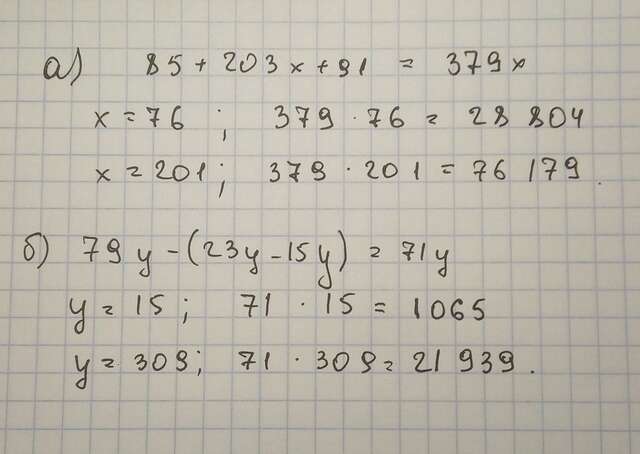 а) 85 + 203 x + 91 = 379 x
x = 76 ; 379 · 76 = 28 804
x = 201 ; 379 · 201 = 76 179 .
б) 79 y - (23y - 15y) = 71y
y = 15 ; 71 · 15 = 1065
y = 309 ; 71 · 309 = 21 939 .